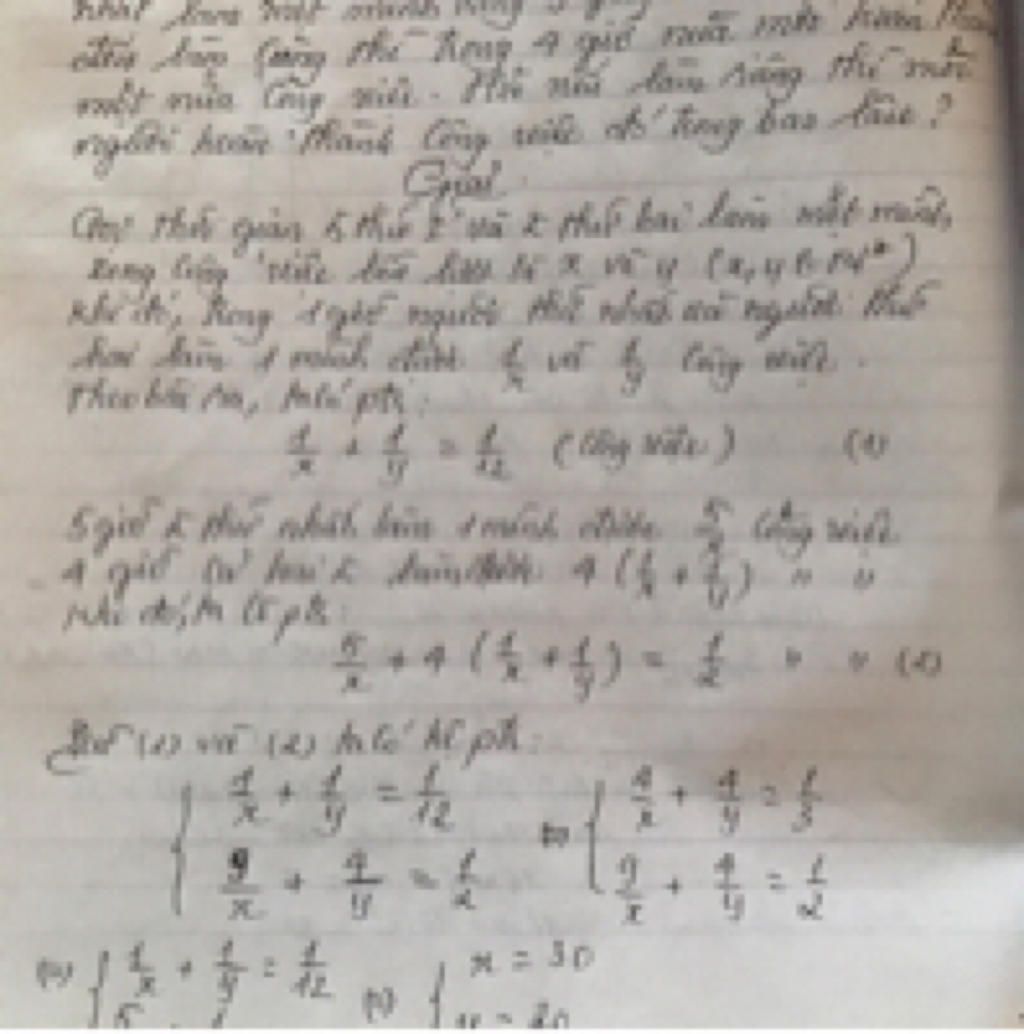 nhất làm một mình trong 5 giờ
đến làm cùng thì trong 4 giờ nữa mới hoàn
một nửa công việc. Hỏi nếu làm riêng thì mỗi
người hoàn thành công việc đó trong bao lâu?
Giải
Gọi thời gian thứ và thứ hai làm một mình
xong công việc lần lượt là x và y (x, y ∈ N*)
Khi đó, trong 1 giờ người thứ nhất và người thứ
hai làm 1 mình được 1/x và 1/y công việc.
Theo bài ra, ta có pt:
1/x + 1/y = 1/12 (công việc) (1)
5 giờ thứ nhất làm 1 mình được 5/x công việc
4 giờ cả hai làm được 4 (1/x + 1/y) " "
Khi đó, ta có pt:
5/x + 4 (1/x + 1/y) = 1/2 " " (2)
Từ (1) và (2) ta có hệ pt:
{ 1/x + 1/y = 1/12 ⇔ { 4/x + 4/y = 1/3
9/x + 4/y = 1/2 9/x + 4/y = 1/2
⇔ { 1/x + 1/y = 1/12 ⇔ { x = 30
y = 20